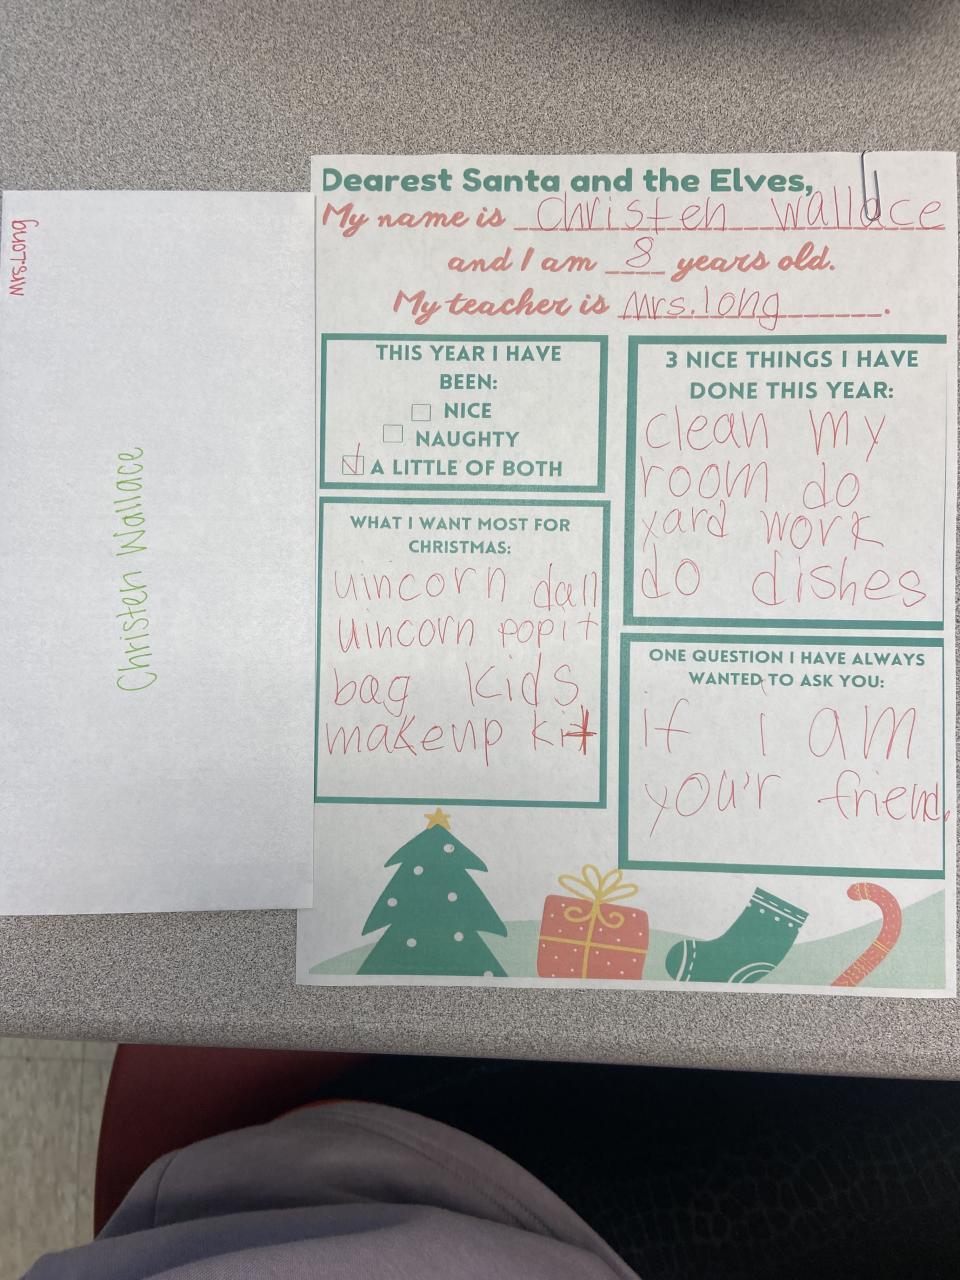 Mrs.Long
Christen Wallace
Dearest Santa and the Elves,
My name is christen wallace
and I am 8 years old.
My teacher is mrs.long.
THIS YEAR I HAVE
BEEN:
NICE
NAUGHTY
A LITTLE OF BOTH
3 NICE THINGS I HAVE
DONE THIS YEAR:
clean my
room do
yard work
do dishes
WHAT I WANT MOST FOR
CHRISTMAS:
uincorn dall
uincorn popit
bag kids
makeup kit
ONE QUESTION I HAVE ALWAYS
WANTED TO ASK YOU:
if i am
you'r friend.